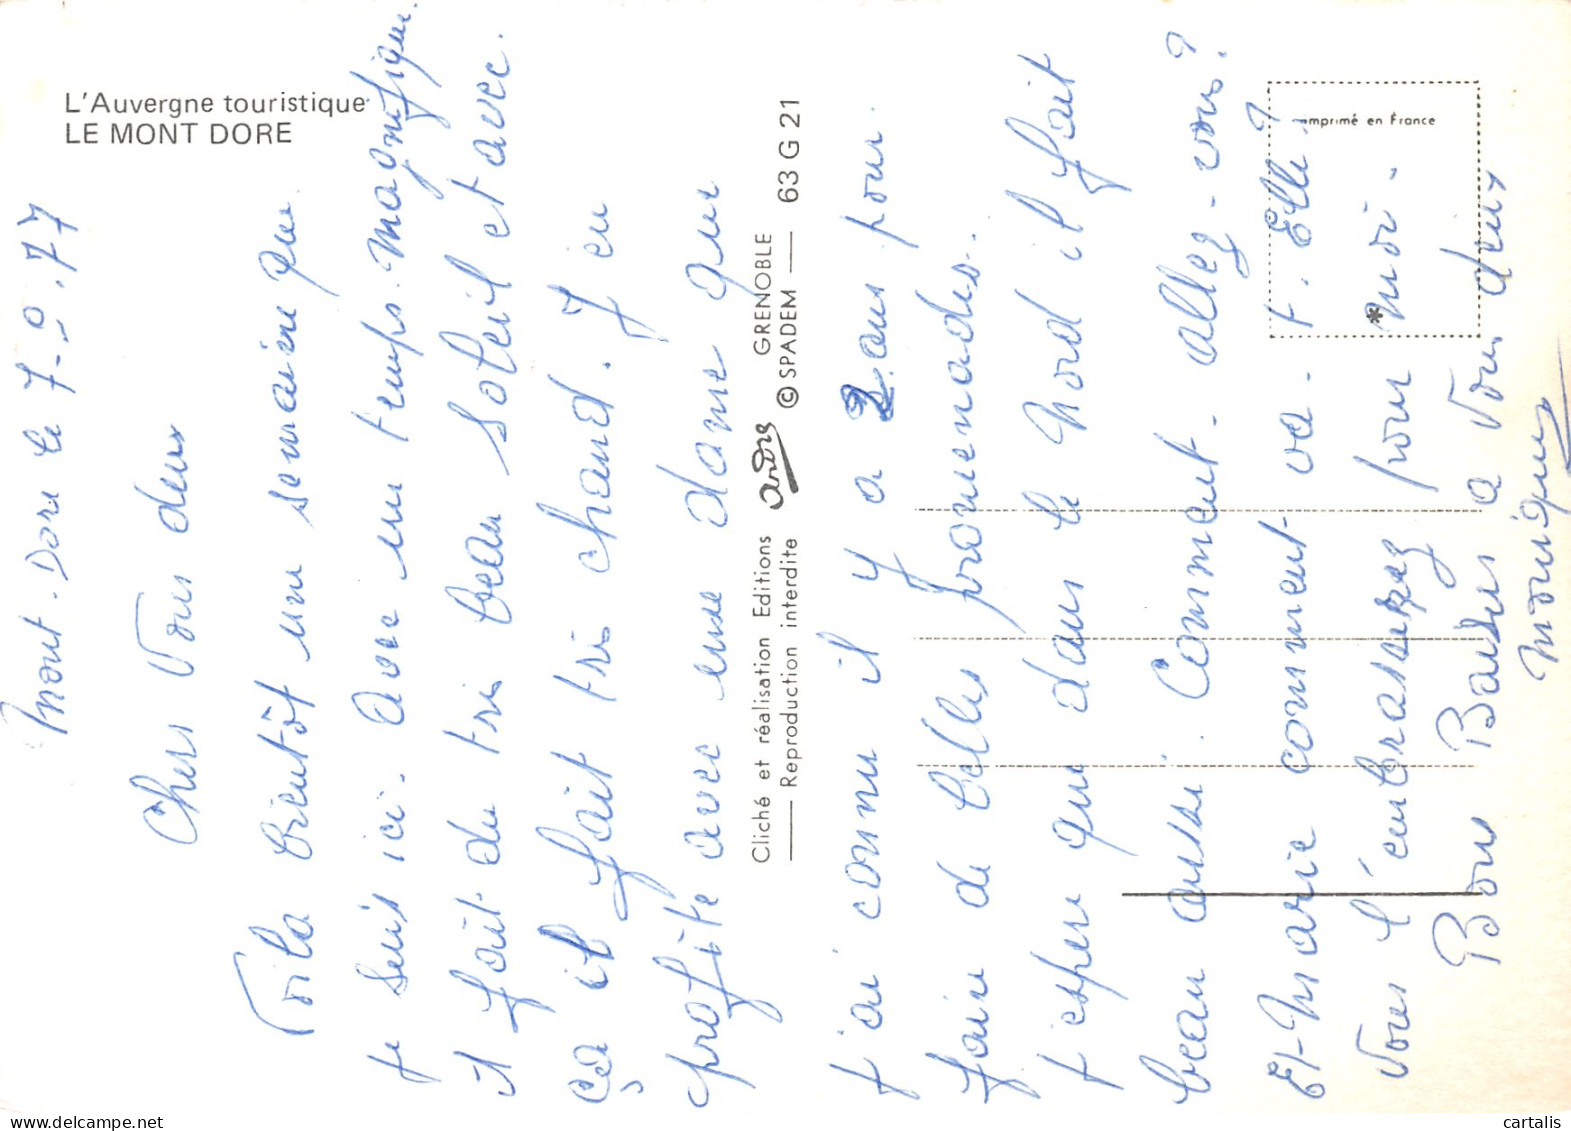 L'Auvergne touristique
LE MONT DORE
Mont-Dore le 7-9.77
Chers Vous deux
Voila bientôt une semaine que
je suis ici. Avec un temps. Magnifique.
il fait du tri beau soleil et avec.
ça il fait tri chaud. J'en
profite avec une dame que
Cliché et réalisation Editions André GRENOBLE
Reproduction interdite © SPADEM 63 G 21
j'ai connu il y a 2 ans pour.
faire de belles promenades.
J'espere que dans le Nord il fait
beau aussi. Comment-allez-vous?
Et-Marie comment va-t-Elle?
Vous l'embrasserez pour moi-
Bons Baisers a Vous deux
Monique
Imprimé en France
*
cartalis
https://www.delcampe.net